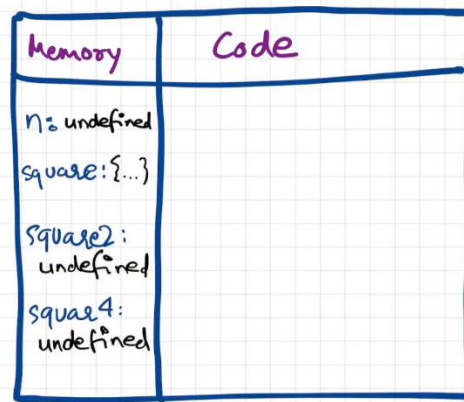 Memory Code
n: undefined
square: {...}
square2:
undefined
squar4:
undefined